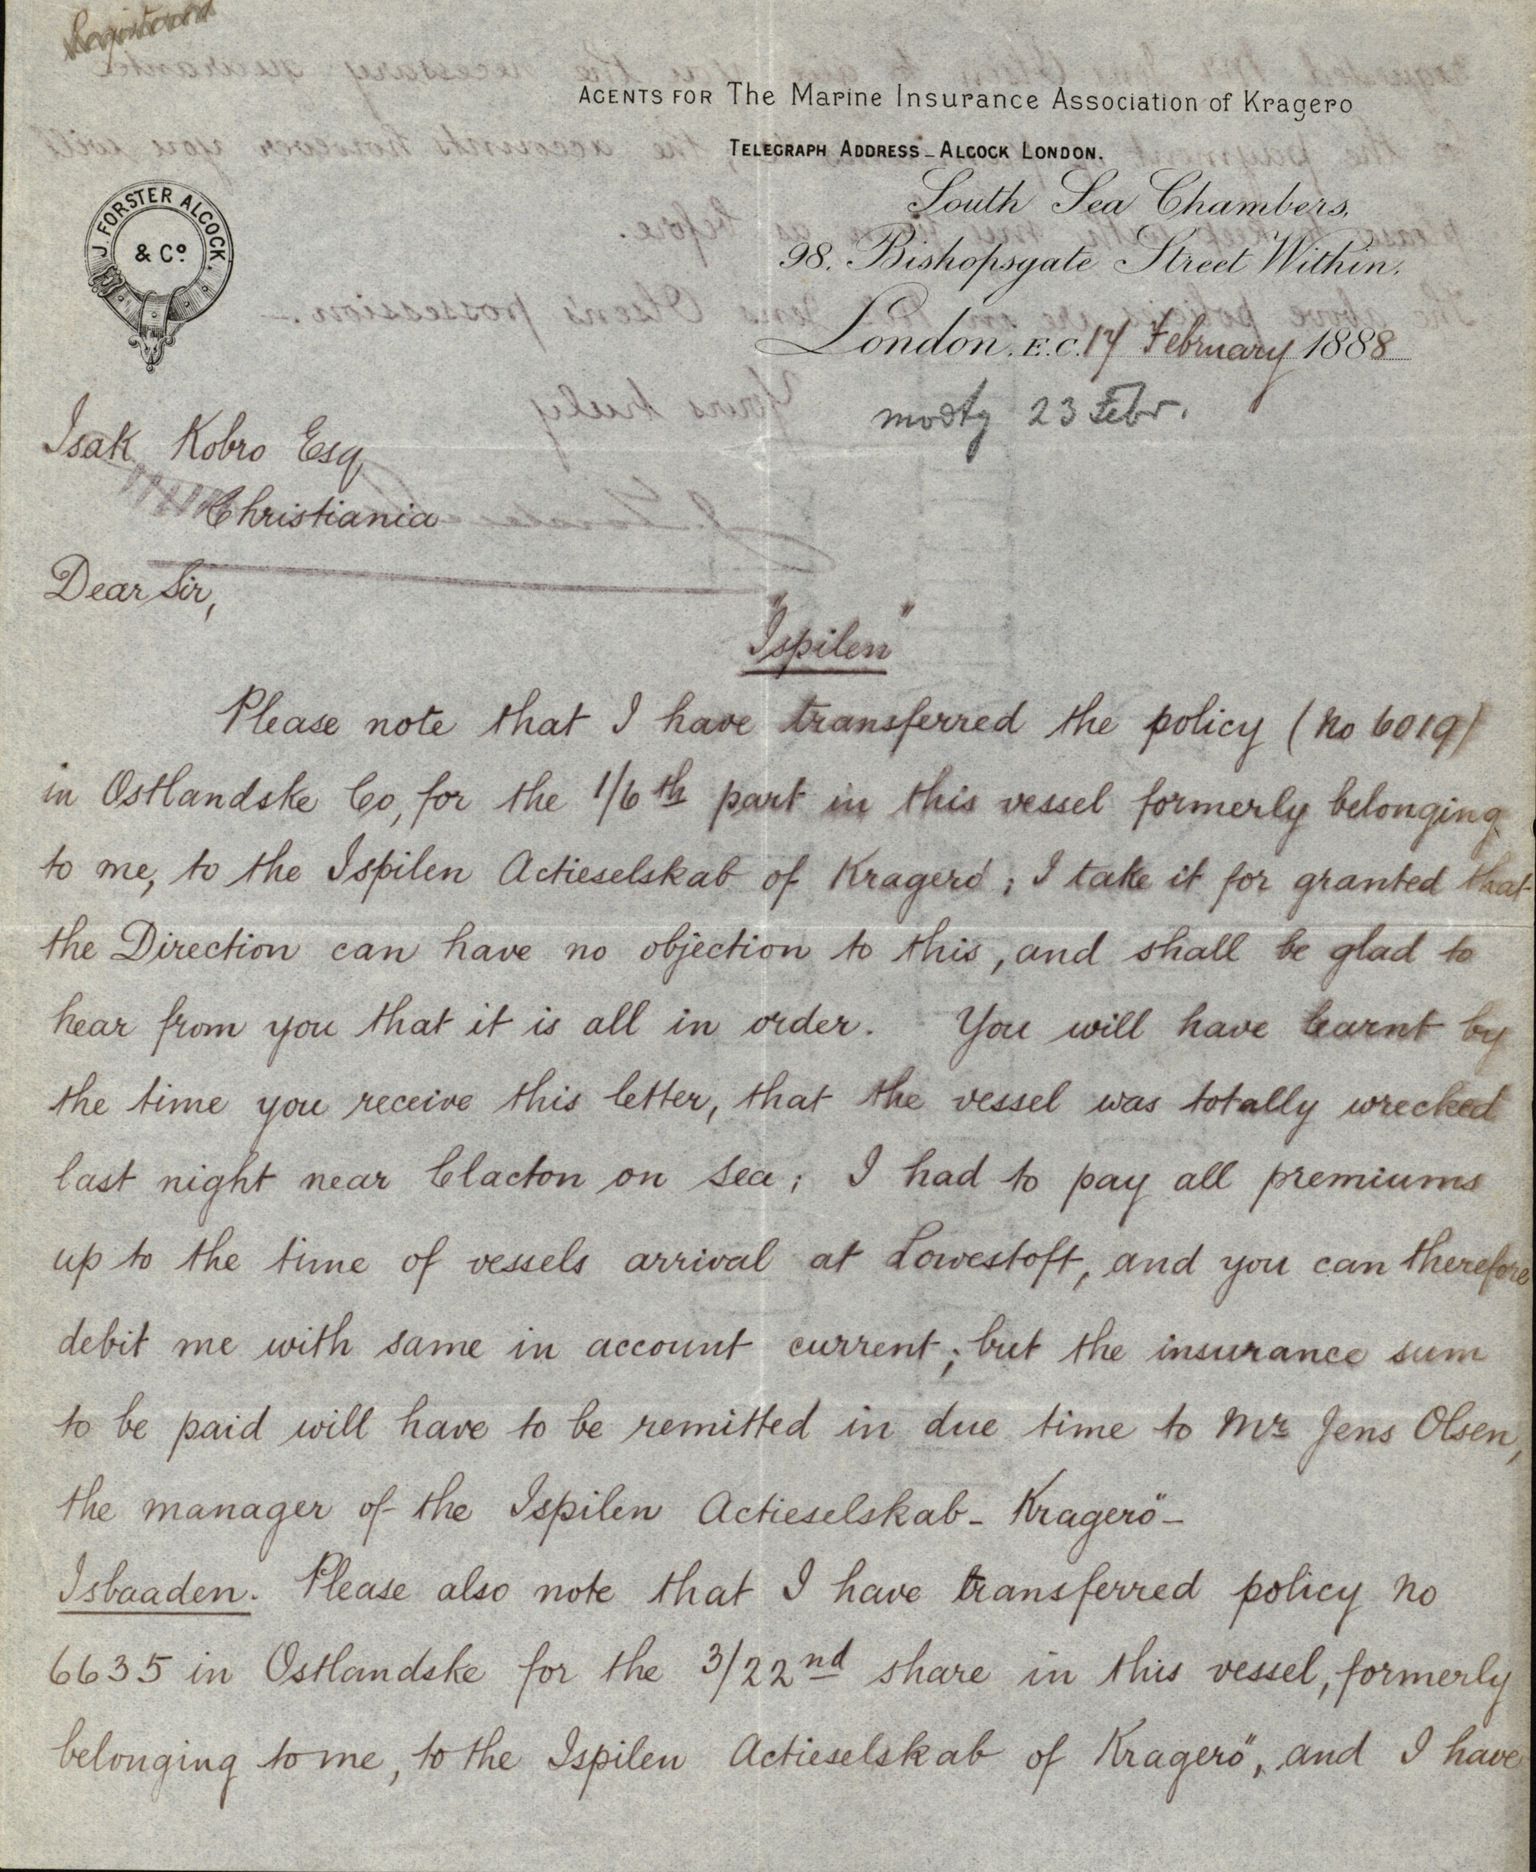 Registered
AGENTS FOR The Marine Insurance Association of Kragero
TELEGRAPH ADDRESS_ALCOCK LONDON.
J. FORSTER ALCOCK.
& Co.
South Sea Chambers,
98. Bishopsgate Street Within.
London. E.C. 17 February 1888
modtg 23 Febr.
Isak Kobro Esq,
Christiania
Dear Sir,
"Ispilen"
Please note that I have transferred the policy (No 6019)
in Ostlandske Co, for the 1/6th part in this vessel formerly belonging
to me, to the Ispilen Actieselskab of Kragerö; I take it for granted that
the Direction can have no objection to this, and shall be glad to
hear from you that it is all in order. You will have learnt by
the time you receive this letter, that the vessel was totally wrecked
last night near Clacton on Sea; I had to pay all premiums
up to the time of vessels arrival at Lowestoft, and you can therefore
debit me with same in account current; but the insurance sum
to be paid will have to be remitted in due time to Mr Jens Olsen,
the manager of the Ispilen Actieselskab_ Kragerö_
Isbaaden. Please also note that I have transferred policy No
6635 in Ostlandske for the 3/22nd share in this vessel, formerly
belonging to me, to the Ispilen Actieselskab of Kragerö, and I have